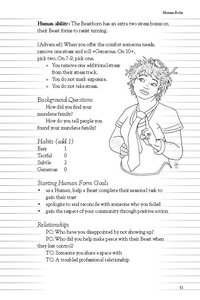 Human Roles
Human ability: The Bearborn has an extra two stress boxes on
their Beast forms to resist turning.
(Advanced) When you offer the comfort someone needs,
remove one stress and roll +Generous. On 10+,
pick two. On 7-9, pick one.
» You remove one additional stress
from their stress track.
» You do not mark exposure.
» You do not take stress.
Background Questions
How did you find your
mundane family?
How do you tell people you
found your mundane family?
Habits (add 1)
Fiery 1
Tactful 0
Subtle 2
Generous 0
Starting Human Form Goals
• as a Human, help a Beast complete their seasonal task to
gain their trust
• apologize to and reconcile with someone who you failed
• gain the respect of your community through positive action
Relationships
PC: Who have you disappointed by not showing up?
PC: Who did you help make peace with their Beast when
they lost control?
TC: Someone you share a space with
TC: A troubled professional relationship